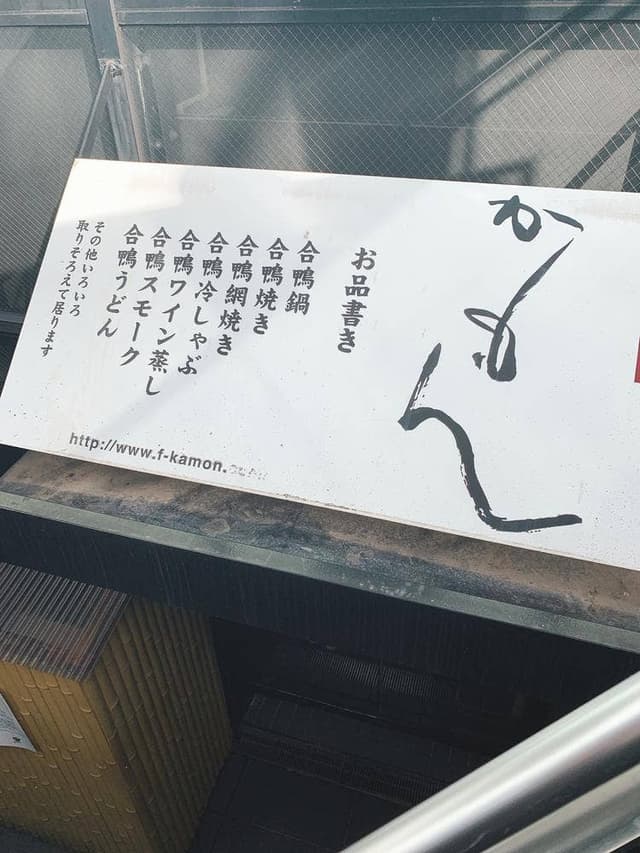 かもん
お品書き
合鴨鍋
合鴨焼き
合鴨網焼き
合鴨冷しゃぶ
合鴨ワイン蒸し
合鴨スモーク
合鴨うどん
その他いろいろ
取りそろえて居ります
http://www.f-kamon.